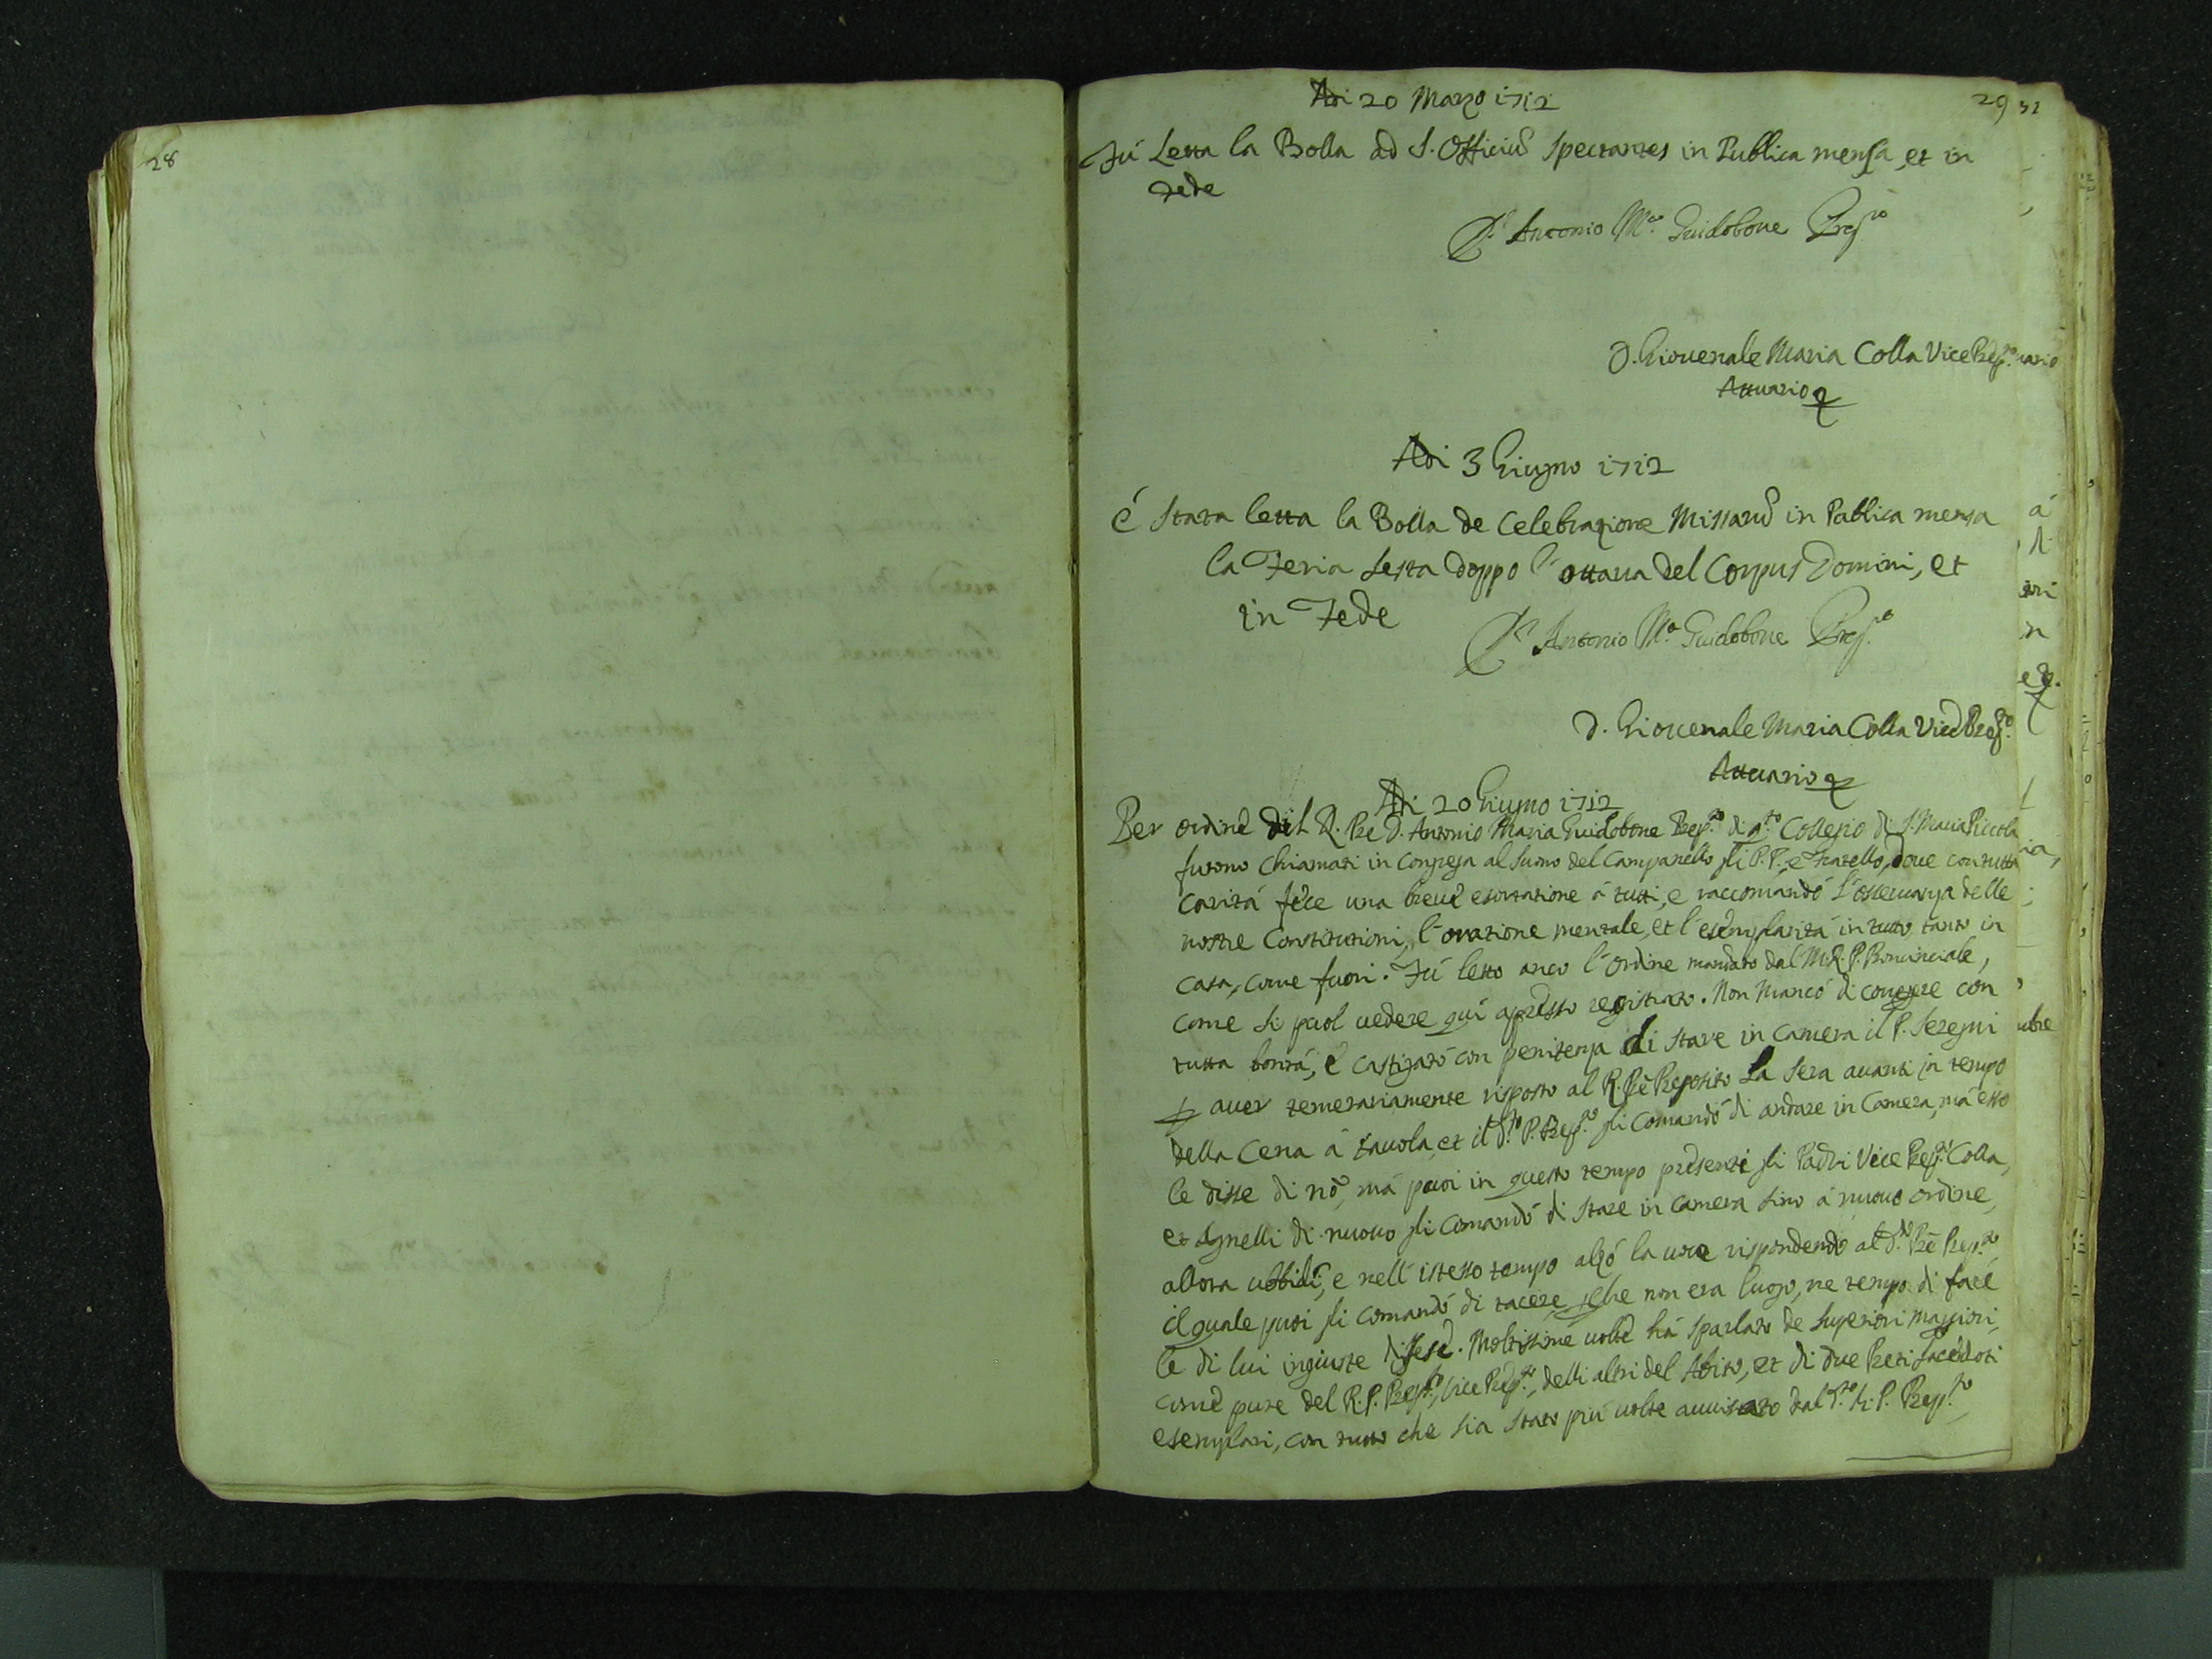 28
29
Adi 20 Marzo 1712
Fú Letta la Bolla ad S. Officiũ Spectantes in Publica mensa, et in
Fede
D. Antonio Mª. Guidobone Prepto
D. Giovenale Maria Colla Vice Prepto.
Attuario
Adi 3 Giugno 1712
é Stata letta la Bolla de Celebrazione Missarũ in Pablica mensa
la Feria Sesta doppo l'ottava del Corpus Domini, et
in Fede
D. Antonio Mª Guidobone Prepto
D. Giovenale Maria Colla Vice Prepto.
Attuario
Adi 20 Giugno 1712
Per ordine del R. Pre D. Antonio Maria Guidobone Prepto di qto Collegio di S. Maria Piccola
furono chiamati in Congrega al suono del Campanello gli P.P. e Fratello, doue con tutta
caritá fece una breue esortatione á tutti, e raccomandó l'osseruanza delle
nostre Constitutioni, l'oratione mentale, et l'esemplaritá in tutto, tanto in
casa, come fuori. Fú letto anco l'ordine mandato dal M.R.P. Prouinciale,
come si puol uedere quí apresso registrato. Non mancó di correggere con
tutta bontá, e castigató con penitenza di stare in camera il P. Seregni
p auer temerariamente risposto al R. Pre Preposito La sera auanti in tempo
della Cena á tauola, et il do. P. Prepto gli comandó di andare in Camera, má esso
le disse di nó, má puoi in questo tempo presenti gli Padri Vice Prepto Colla,
et Agnelli di nuouo gli comandó di stare in camera sino á nuouo ordine,
allora ubbidí, e nell'istesso tempo alzó la uoce rispondendo al do. Pre Prepto,
il quale puoi gli comandó di tacere, che non era luogo, ne tempo di fare
le di lui ingiuste difese. Moltissime uolte há sparlato de Superiori maggiori,
come pure del R.P. Prepto, Vice Prepto, delli altri del Abito, et di due Preti sacedoti
esemplari, con tutto che sia stato piú uolte auuisato dal do. R. P. Prepto